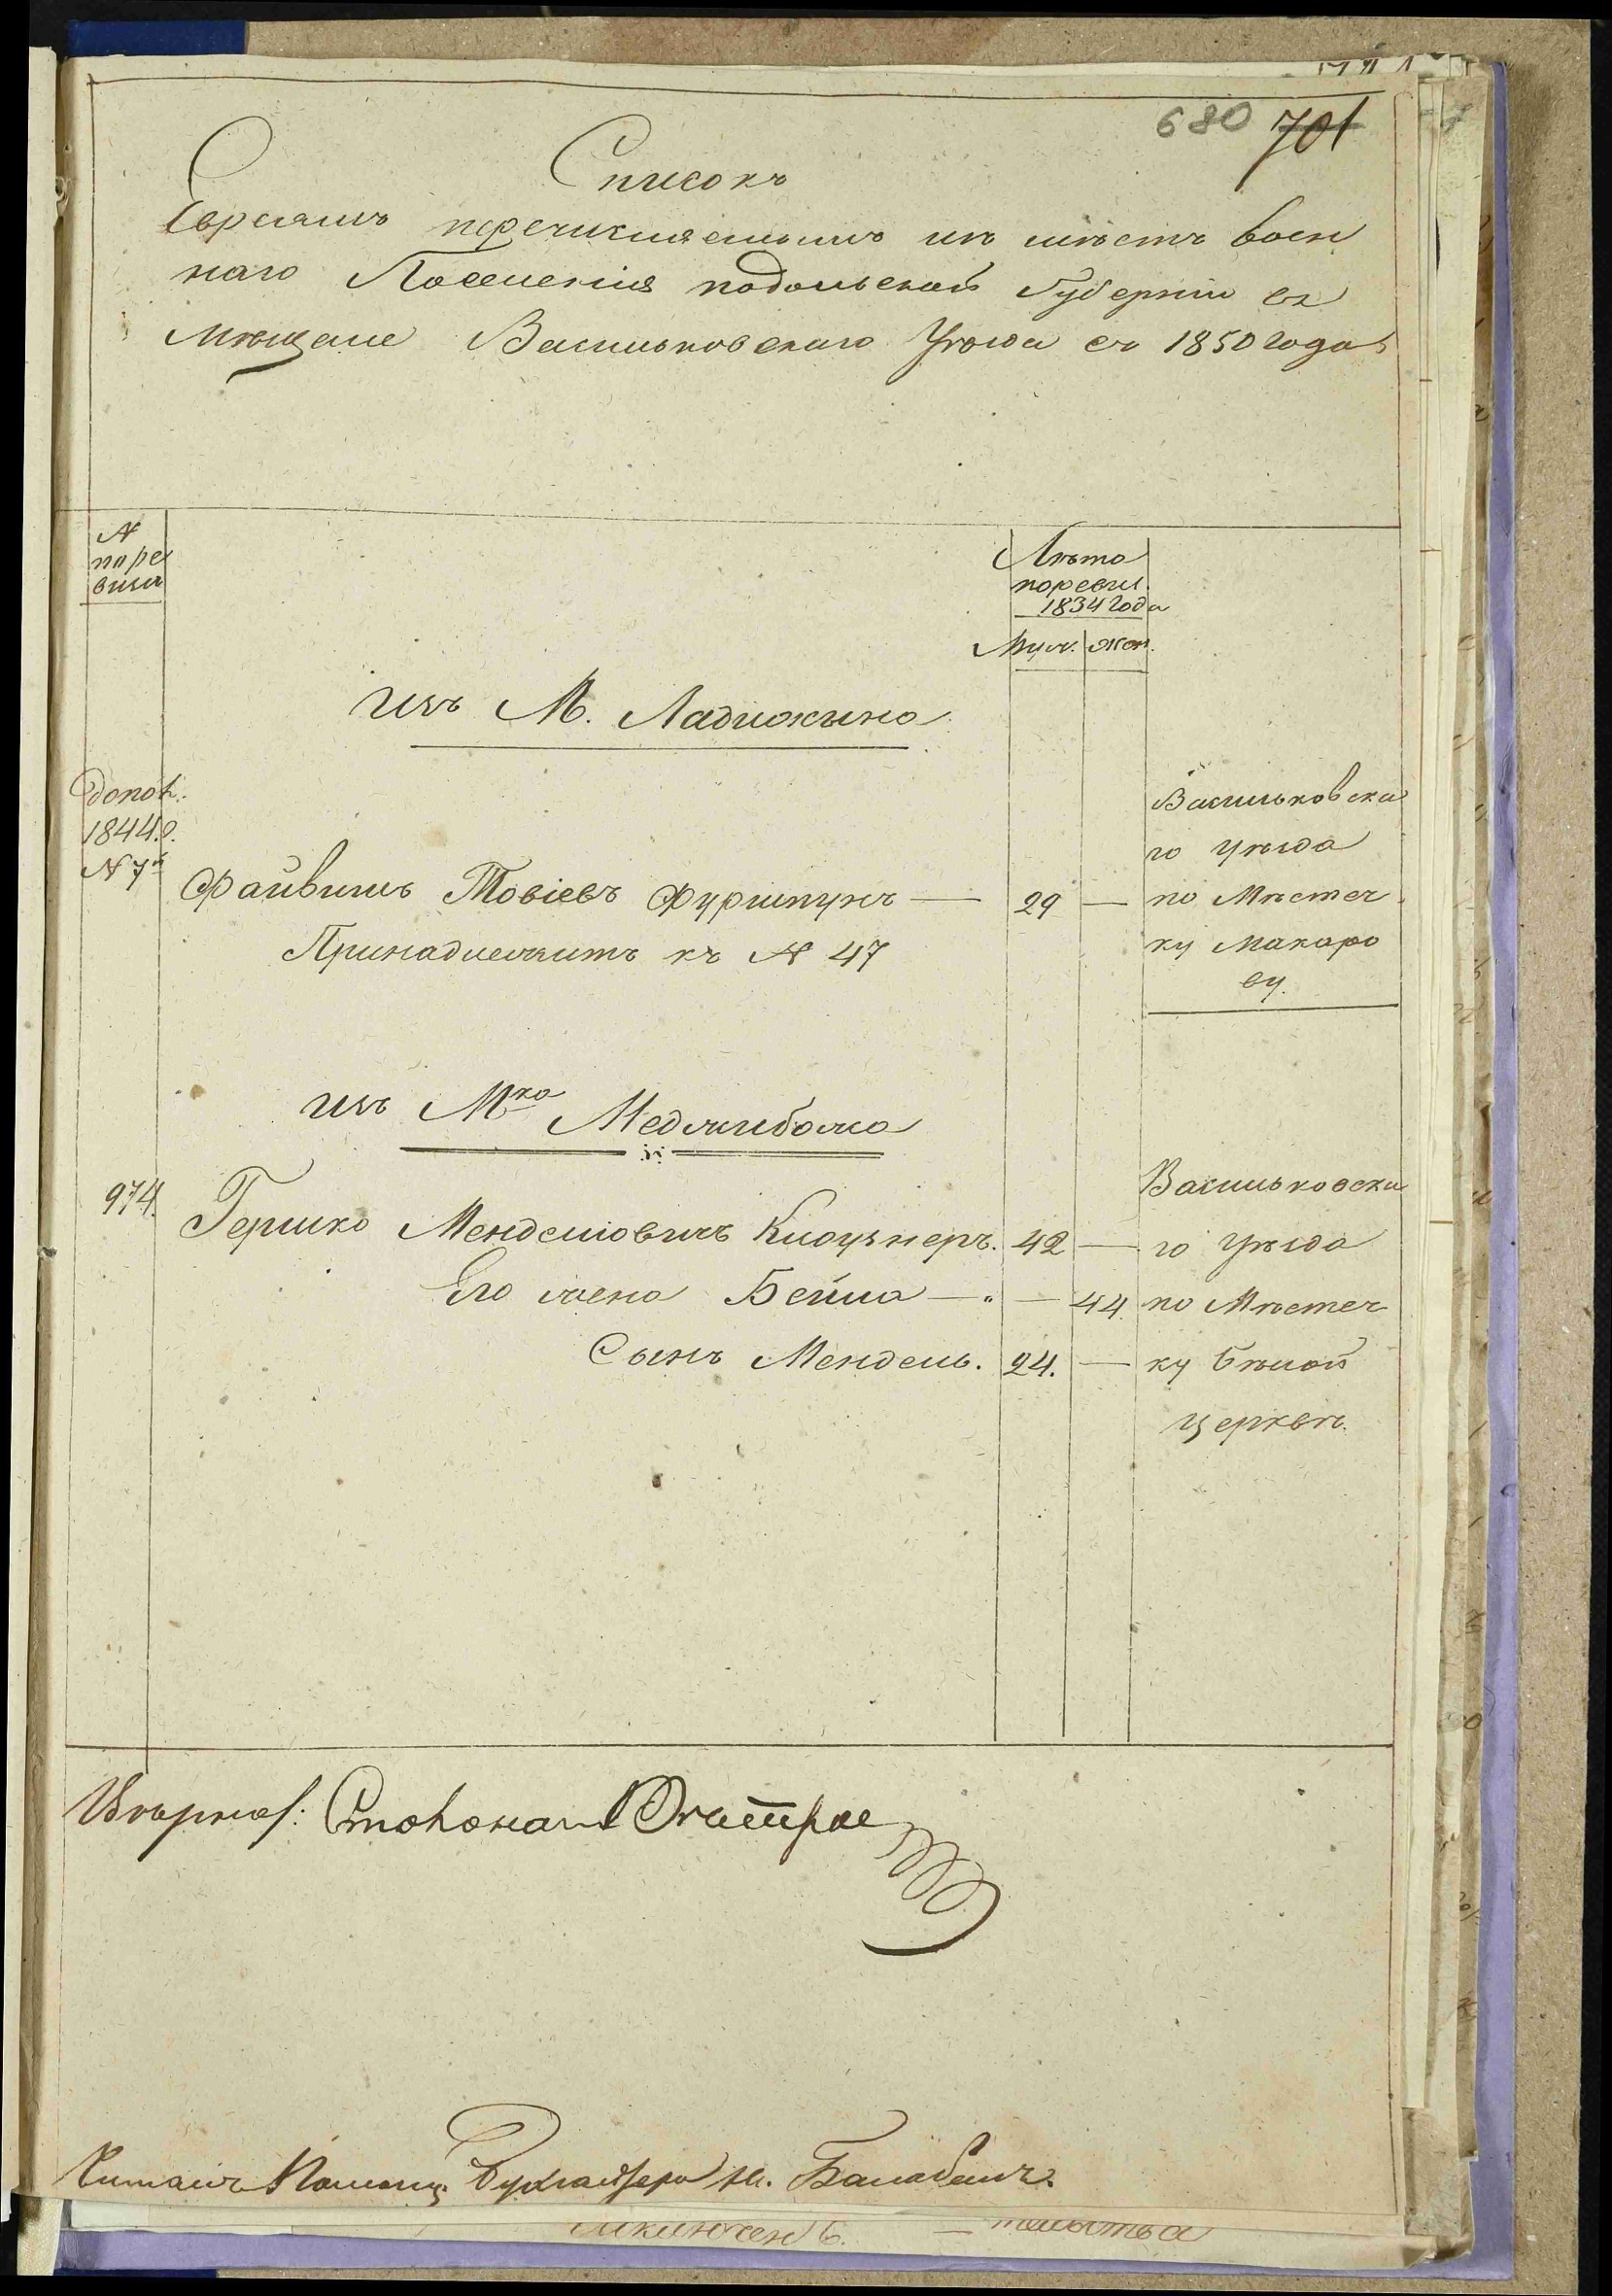 680 701
Списокъ
Евреямъ перечисляемымъ изъ мѣстъ воен
наго Поселенія подольской Губерніи въ
Мѣщане Васильковскаго Уѣзда съ 1850 года
№
по ре
визіи
Лѣта
по ревиз.
1834 года
Муж. Жен.
изъ М. Ладыжина
допол.
1844 г.
№ 7й
Файвишъ Товіевъ Фуршпунъ — 29 —
Принадлежитъ къ № 47
Васильковска
го уѣзда
по Мѣстеч
ку Макаро
ву.
изъ Мка Меджибожа
974. Гершко Менделіовичъ Клоузнеръ. 42 —
Его жена Бейла — " — 44.
Сынъ Мендель. 24. —
Васильковска
го уѣзда
по Мѣстеч
ку Бѣлой
церквѣ.
Читалъ Помощ. Бухгалтера Балабашъ.